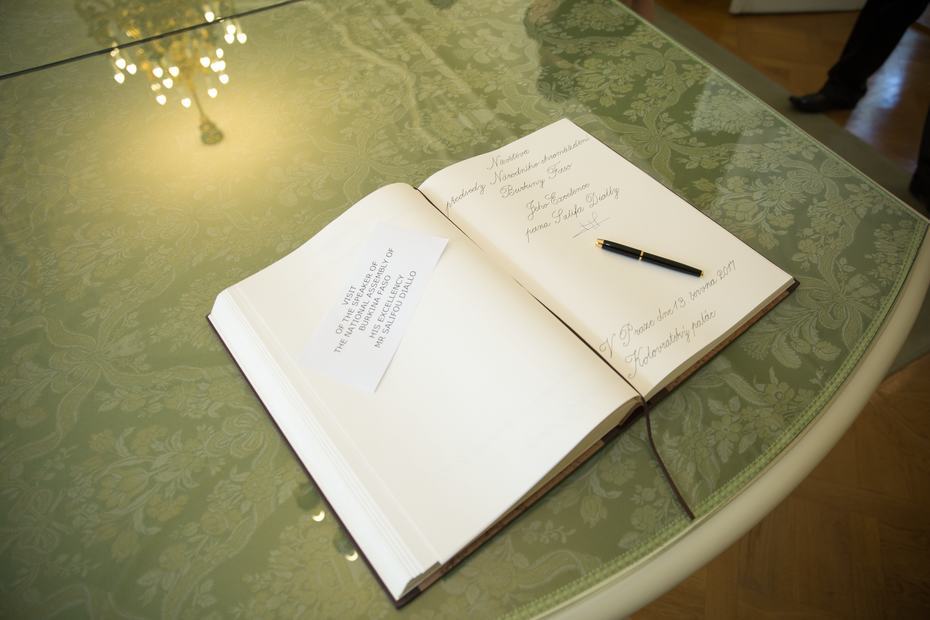 VISIT
OF THE SPEAKER OF
THE NATIONAL ASSEMBLY OF
BURKINA FASO
HIS EXCELLENCY
MR SALIFOU DIALLO
Návštěva
předsedy Národního shromáždění
Burkiny Faso
Jeho Excelence
pana Salifa Dialla
V Praze dne 13. června 2017
Kolovratský palác